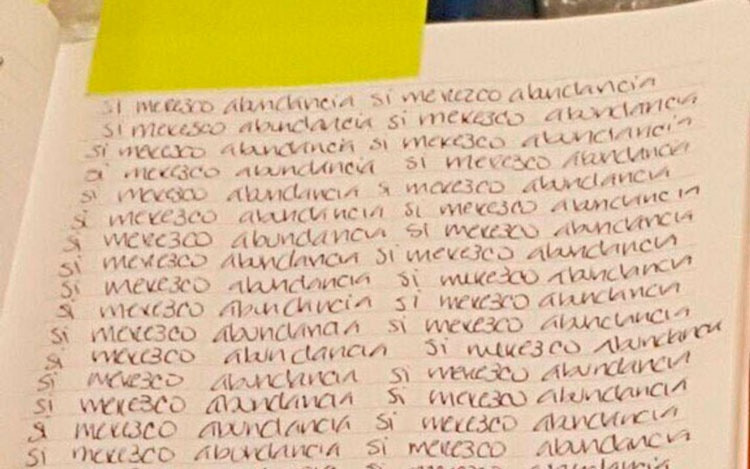 si merezco abundancia si merezco abundancia
si merezco abundancia si merezco abundancia
si merezco abundancia si merezco abundancia
si merezco abundancia si merezco abundancia
si merezco abundancia si merezco abundancia
si merezco abundancia si merezco abundancia
si merezco abundancia si merezco abundancia
si merezco abundancia si merezco abundancia
si merezco abundancia si merezco abundancia
si merezco abundancia si merezco abundancia
si merezco abundancia si merezco abundancia
si merezco abundancia si merezco abundancia
si merezco abundancia si merezco abundancia
si merezco abundancia si merezco abundancia
si merezco abundancia si merezco abundancia
si merezco abundancia si merezco abundancia